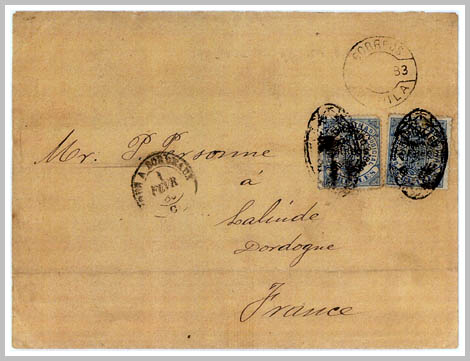 CORREOS
83
MANILA
Mr. P. Personne
à
Lalinde
Dordogne
France
A BORDEAUX
1
FEVR